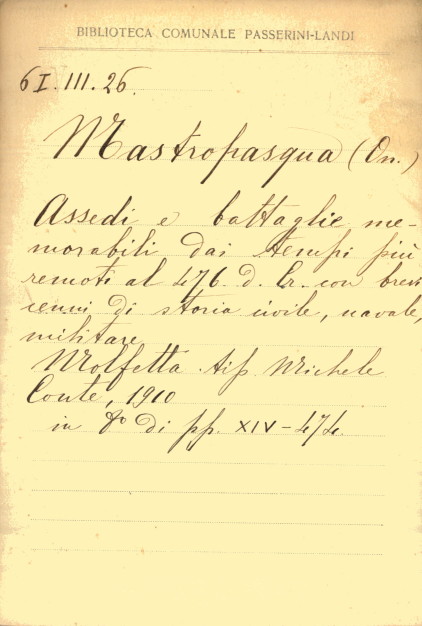 BIBLIOTECA COMUNALE PASSERINI-LANDI
6 I. III. 26.
Mastropasqua (On.)
Assedi e battaglie me-
morabili dai tempi più
remoti al 476. d. Cr. con brevi
cenni di storia civile, navale,
militare
Molfetta. tip. Michele
Conte, 1910
in 8º di pp. XIV-474.